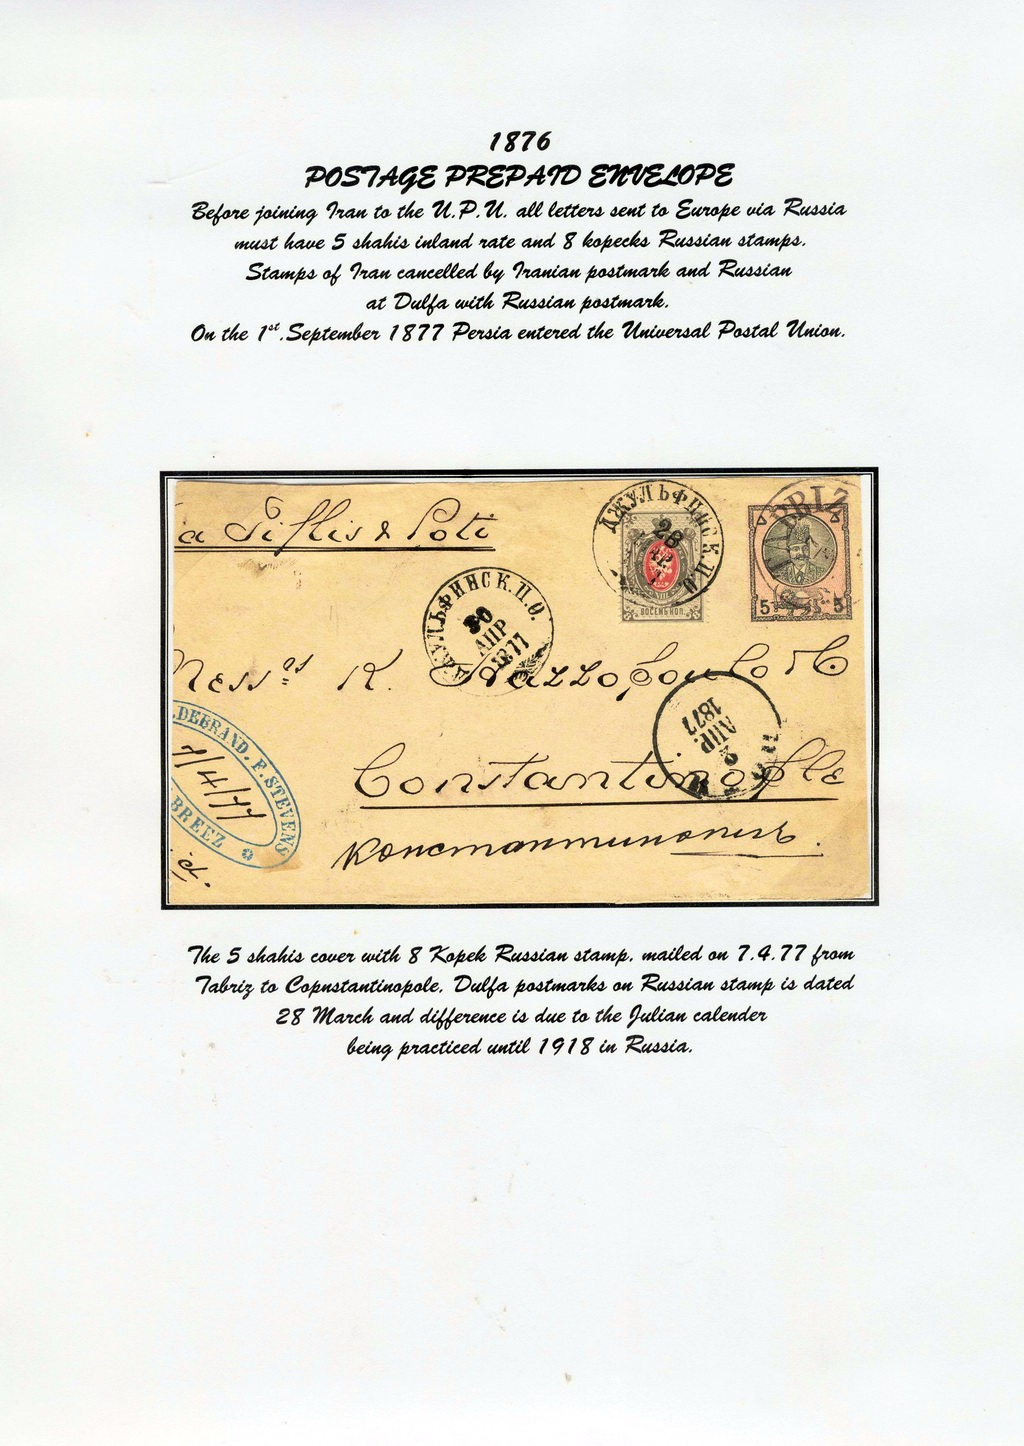 1876
POSTAGE PREPAID ENVELOPE
Before joining Iran to the U.P.U. all letters sent to Europe via Russia
must have 5 shahis inland rate and 8 kopecks Russian stamps.
Stamps of Iran cancelled by Iranian postmark and Russian
at Dulfa with Russian postmark.
On the 1st.September 1877 Persia entered the Universal Postal Union.
a Tiflis & Poti
ДЖУЛЬФИНСК.П.О.
28
ВОСЕМЬ КОП.
BRIZ
5 5
УЛЬФИНСК.П.О.
30
АПР
1877
Mess:rs K.
2
АПР.
1877
Constantinople
Константинополь.
LDEBRAND. F. STEVENS
7/4/77
BREEZ
The 5 shahis cover with 8 Kopek Russian stamp, mailed on 7.4.77 from
Tabriz to Copnstantinopole, Dulfa postmarks on Russian stamp is dated
28 March and difference is due to the Julian calender
being practiced until 1918 in Russia.